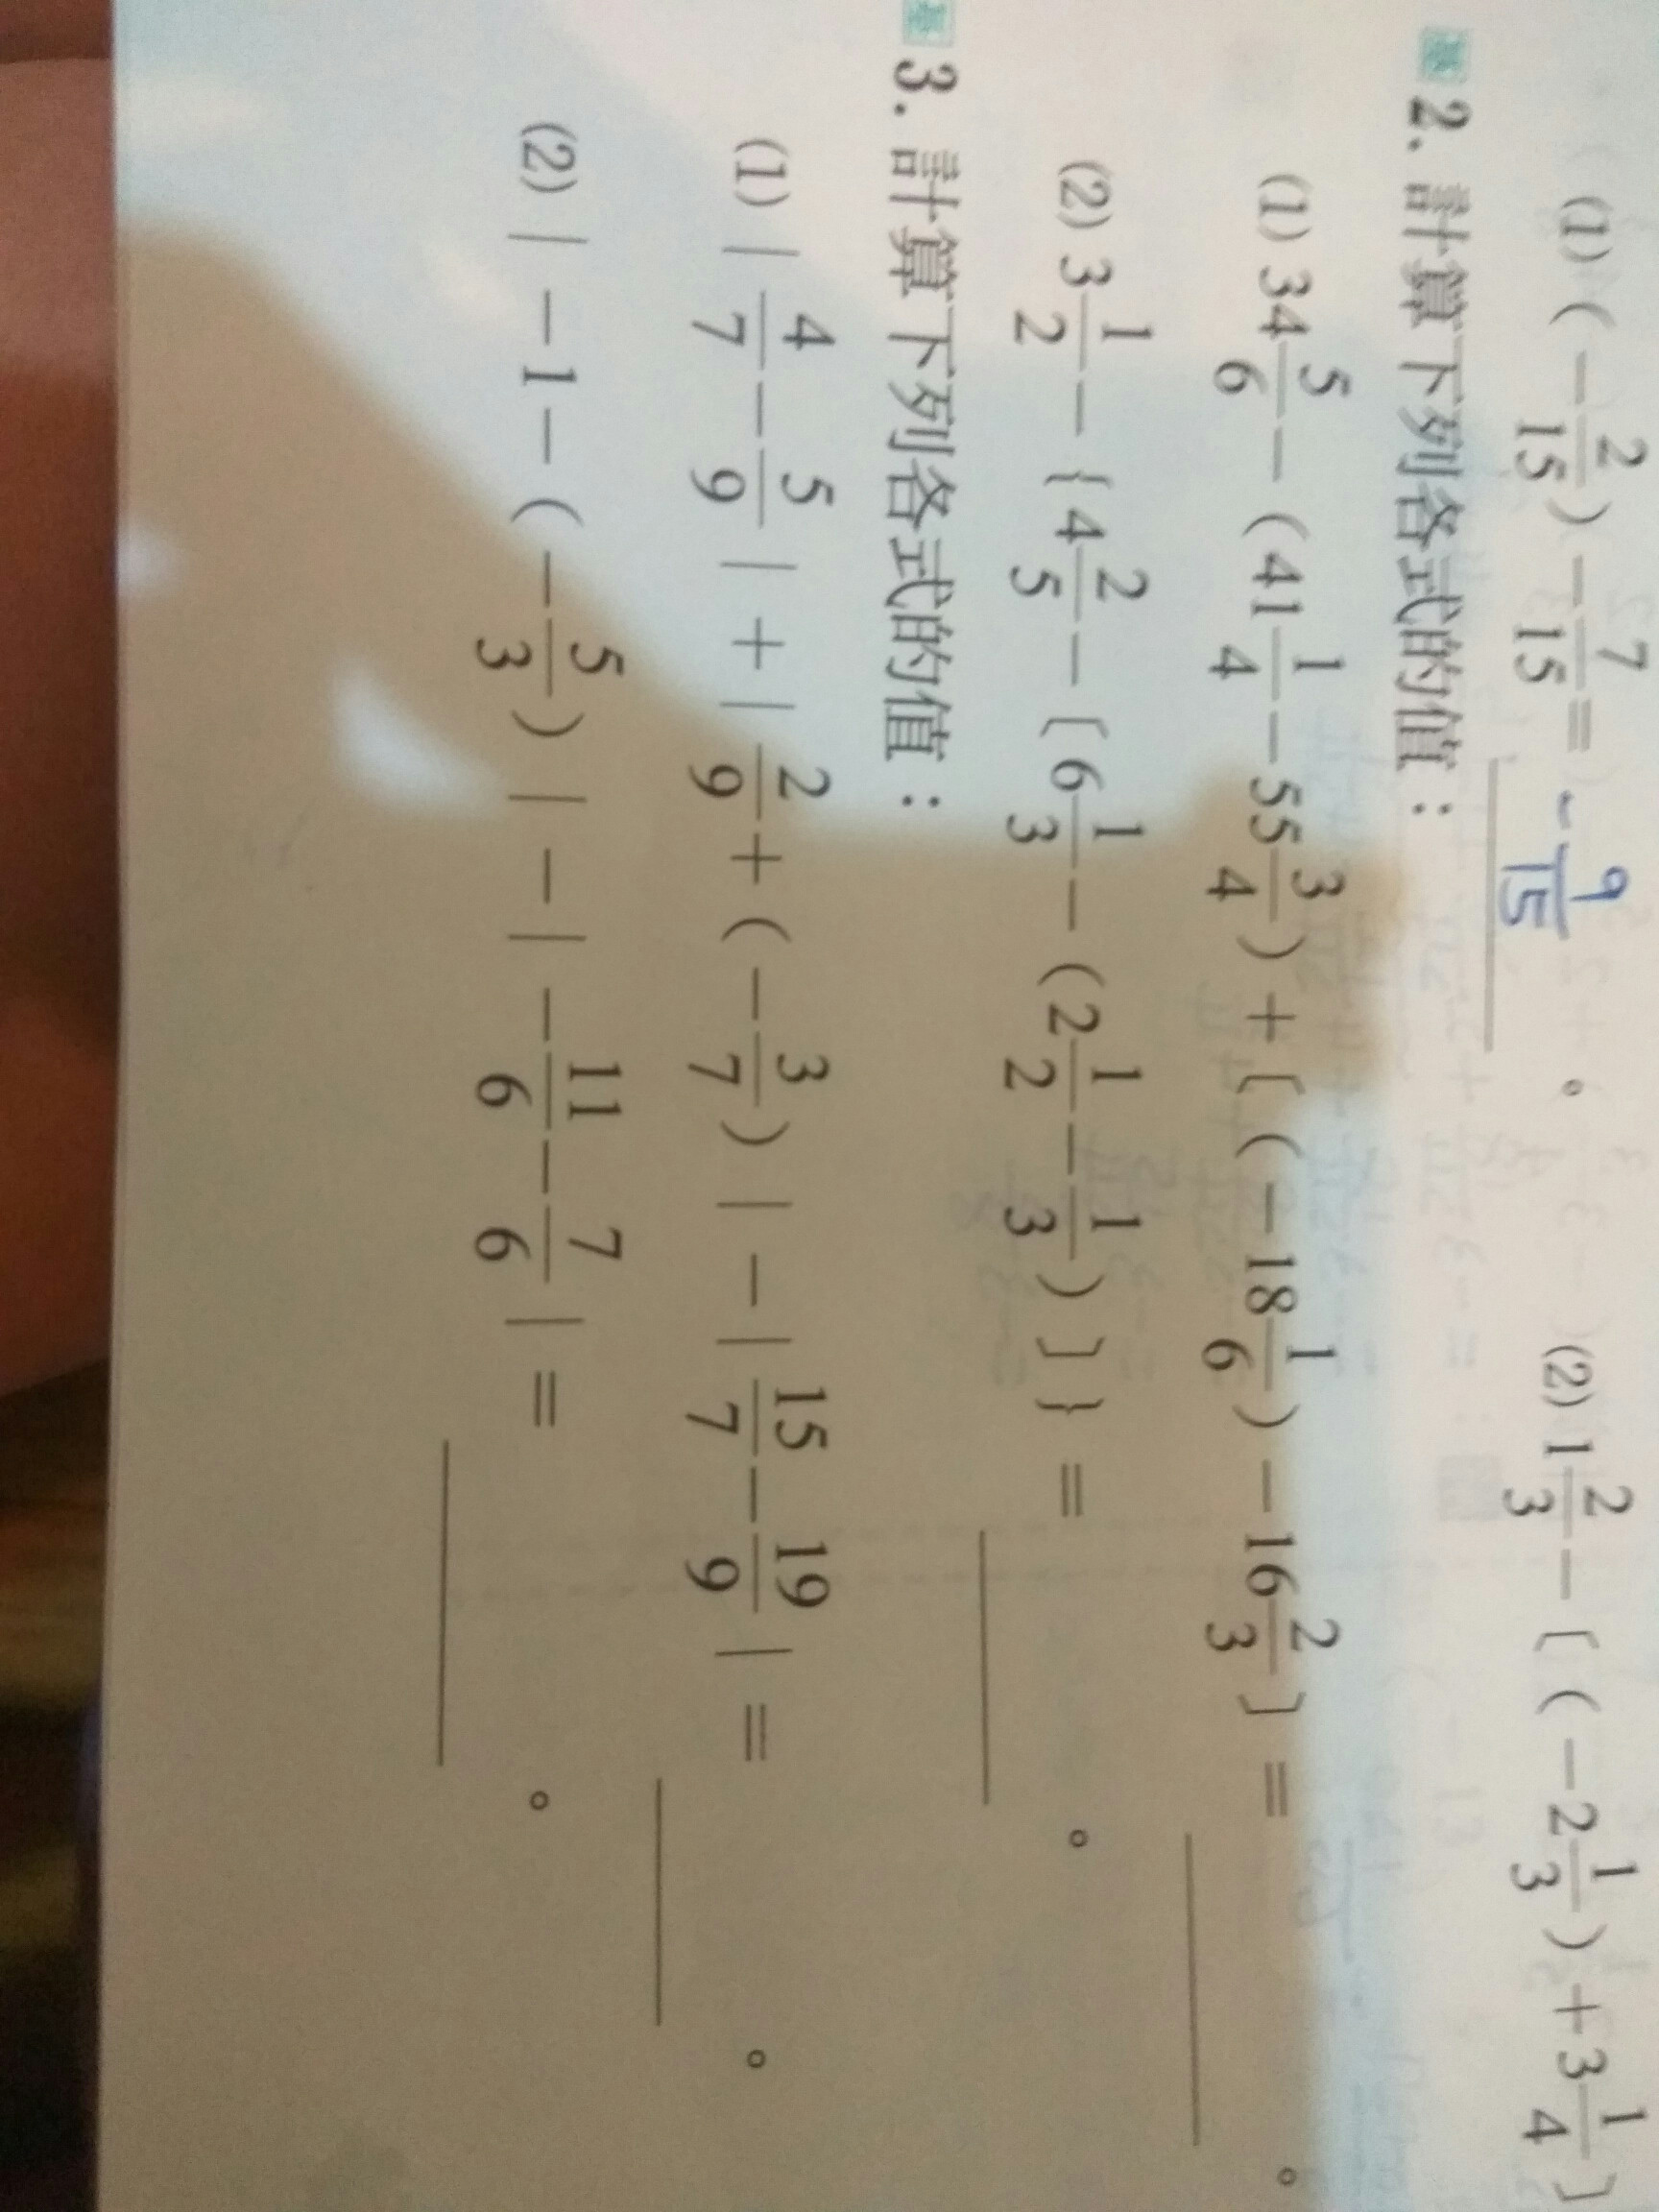 (1) (－2/15)－7/15＝-9/15。 (2) 1 2/3－〔(－2 1/3)＋3 1/4〕
2. 計算下列各式的值：
(1) 34 5/6－(41 1/4－55 3/4)＋〔(－18 1/6)－16 2/3〕＝　　。
(2) 3 1/2－{4 2/5－〔6 1/3－(2 1/2－1/3)〕}＝　　。
3. 計算下列各式的值：
(1) |4/7－5/9|＋|2/9＋(－3/7)|－|15/7－19/9|＝　　。
(2) |－1－(－5/3)|－|－11/6－7/6|＝　　。